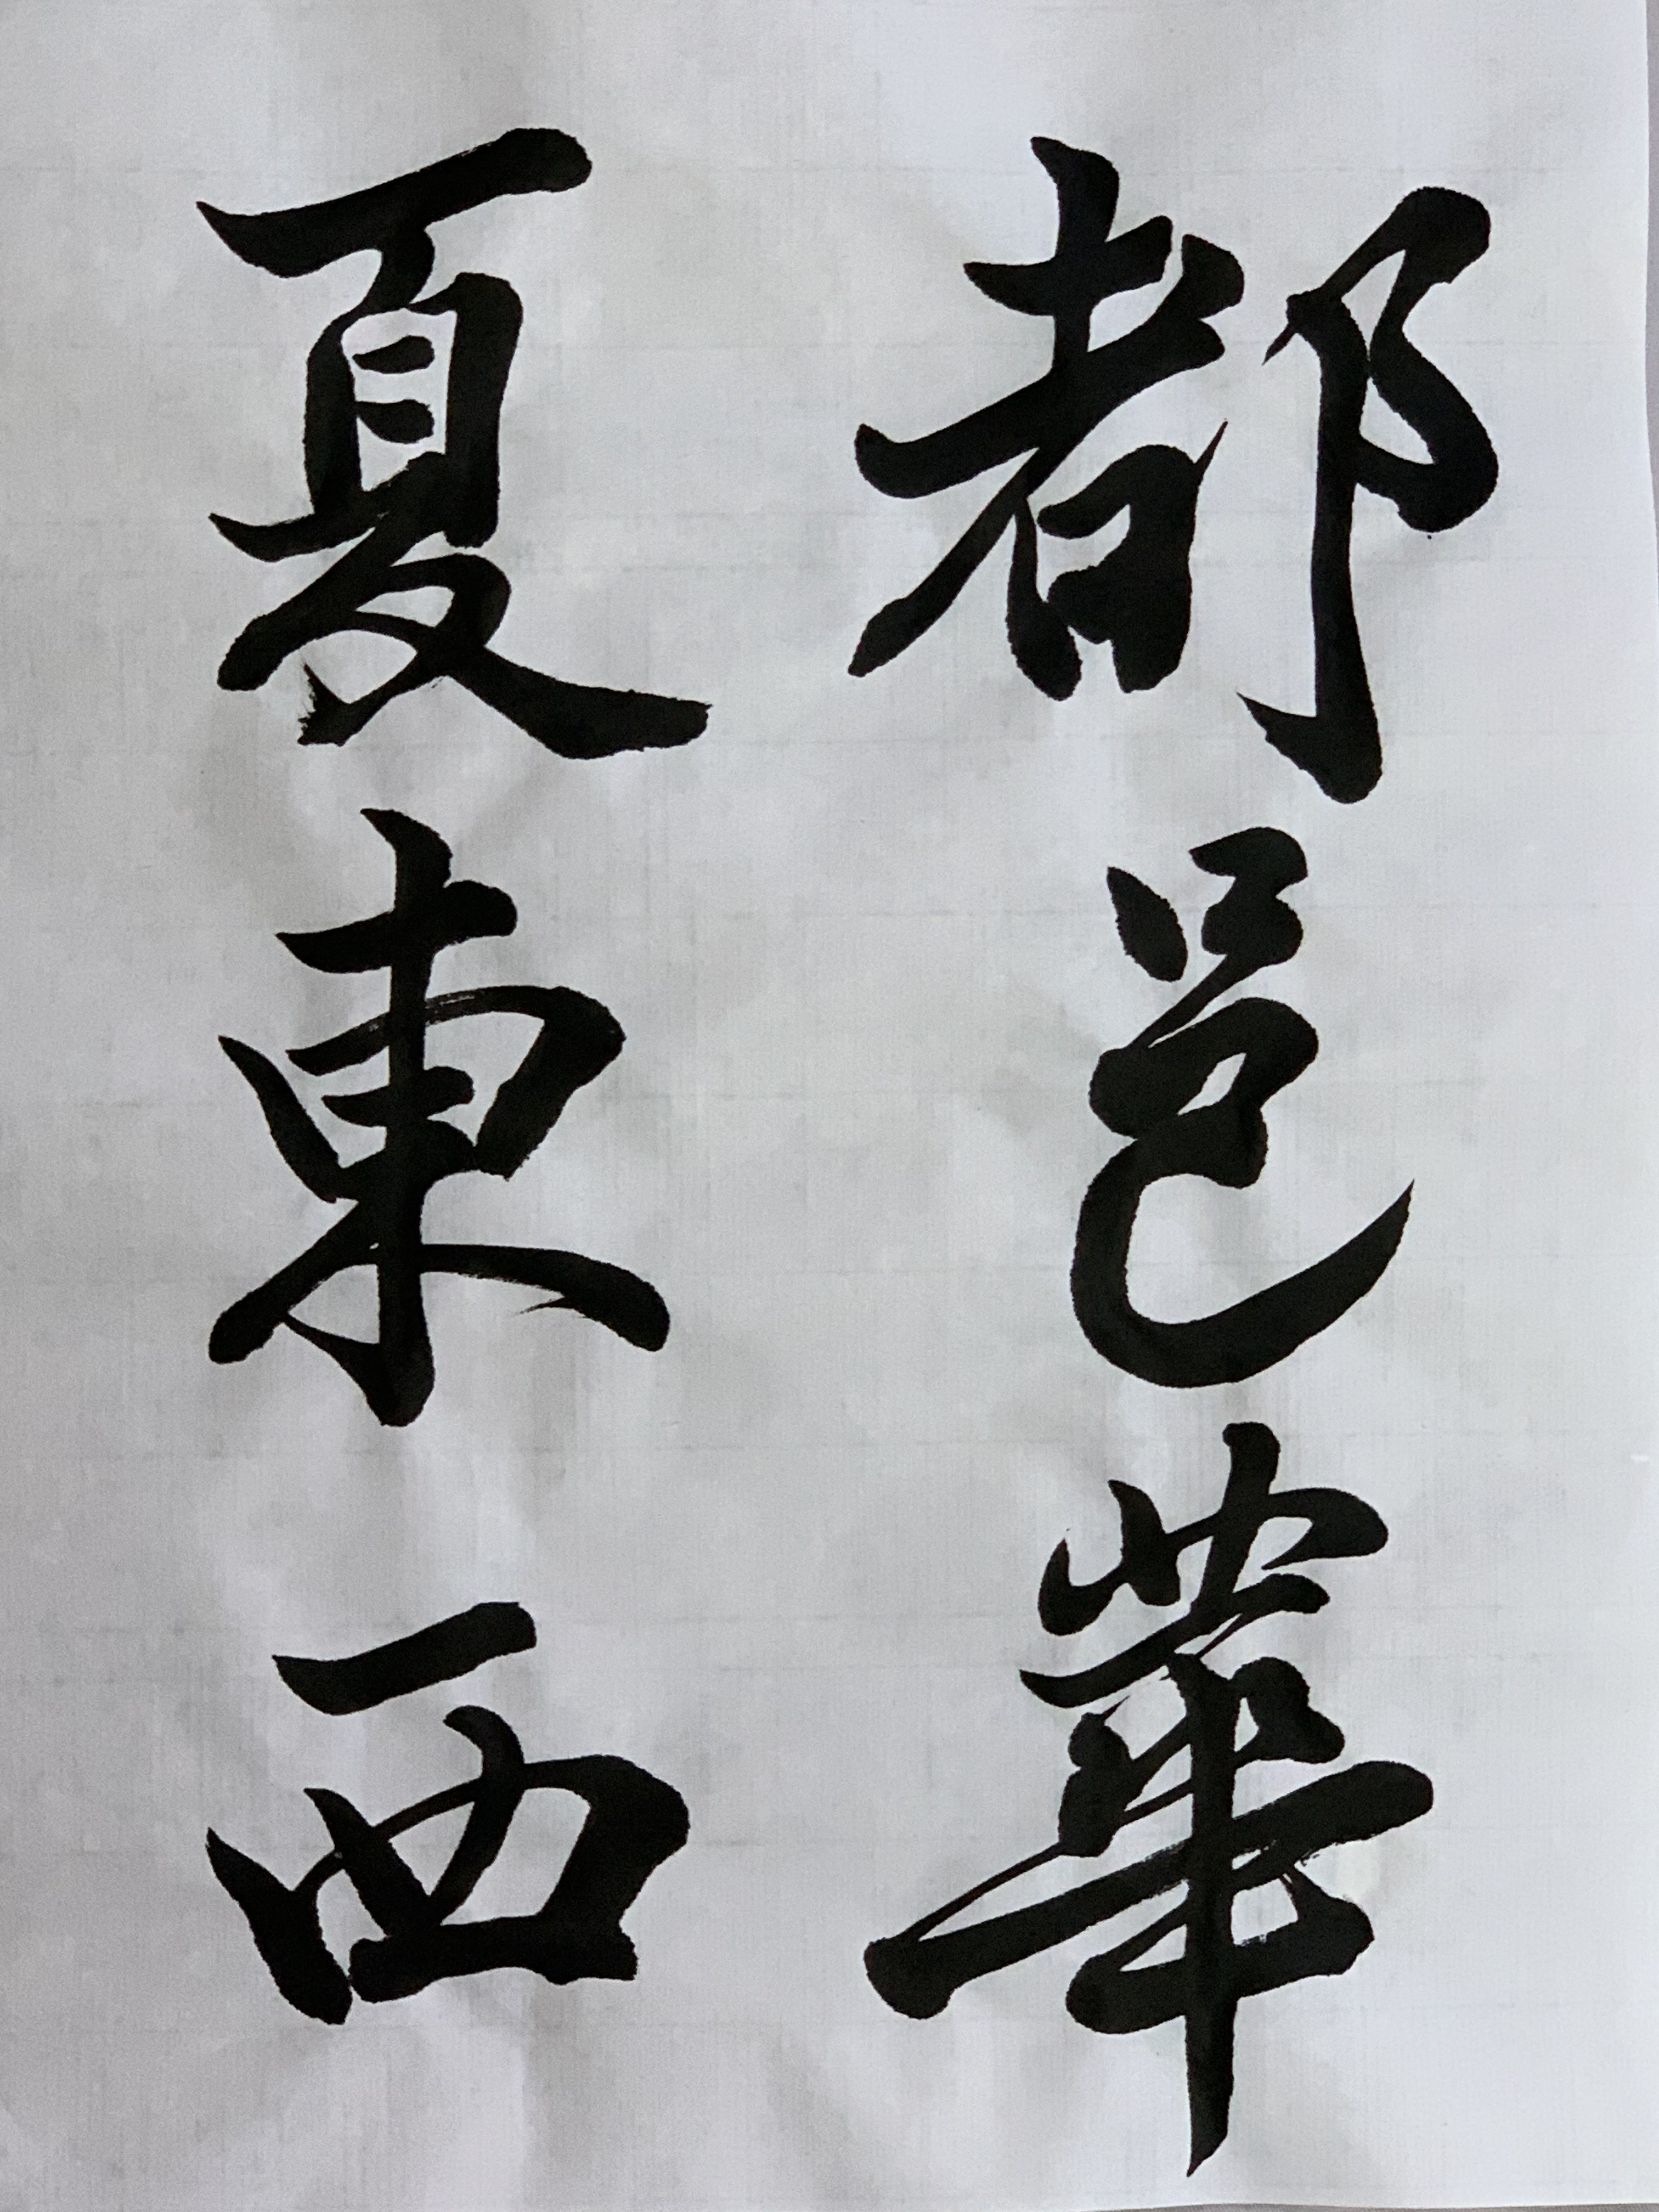 都邑華
夏東西